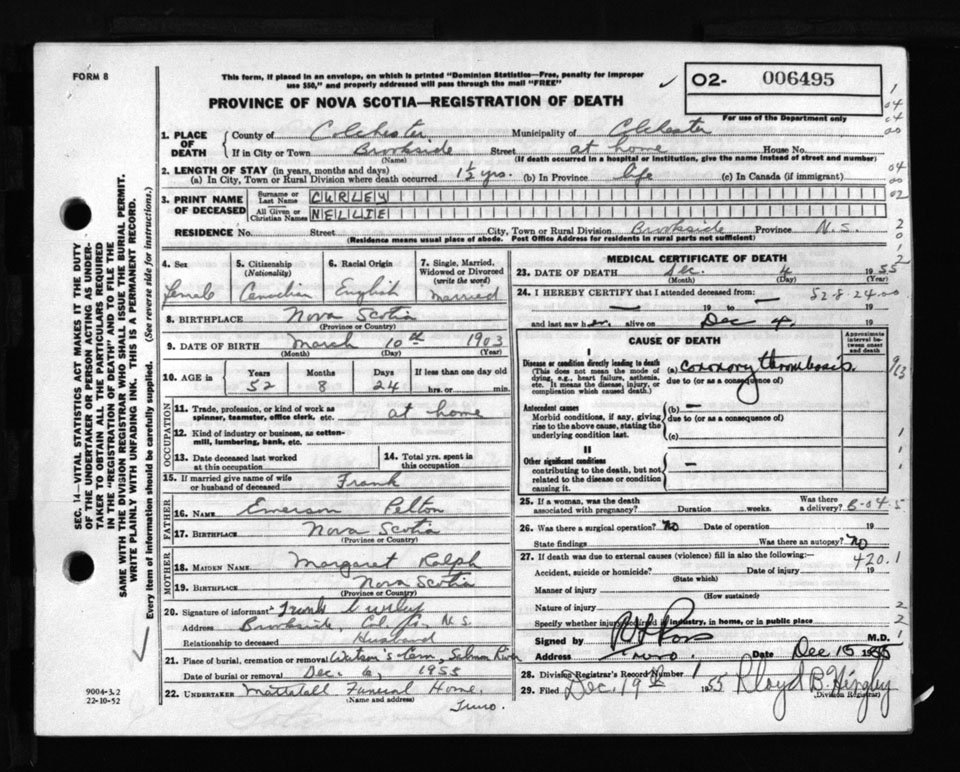 FORM 8
This form, if placed in an envelope, on which is printed "Dominion Statistics—Free, penalty for improper
use $50," and properly addressed will pass through the mail "FREE"
02- 006495
For use of the Department only
PROVINCE OF NOVA SCOTIA—REGISTRATION OF DEATH
1. PLACE OF DEATH
County of Colchester Municipality of Colchester
If in City or Town Brookside Street at home House No.
(Name) (If death occurred in a hospital or institution, give the name instead of street and number)
2. LENGTH OF STAY (in years, months and days)
(a) In City, Town or Rural Division where death occurred 1½ yrs. (b) In Province life (c) In Canada (if immigrant)
3. PRINT NAME OF DECEASED
Surname or Last Name CURLEY
All Given or Christian Names NELLIE
RESIDENCE No. Street City, Town or Rural Division Brookside Province N.S.
(Residence means usual place of abode. Post Office Address for residents in rural parts not sufficient)
4. Sex Female
5. Citizenship (Nationality) Canadian
6. Racial Origin English
7. Single, Married, Widowed or Divorced (write the word) Married
8. BIRTHPLACE Nova Scotia
(Province or Country)
9. DATE OF BIRTH March 10th 1903
(Month) (Day) (Year)
10. AGE in Years 52 Months 8 Days 24 If less than one day old hrs. or min.
OCCUPATION
11. Trade, profession, or kind of work as spinner, teamster, office clerk, etc. at home
12. Kind of industry or business, as cotton-mill, lumbering, bank, etc.
13. Date deceased last worked at this occupation
14. Total yrs. spent in this occupation
15. If married give name of wife or husband of deceased Frank
FATHER
16. NAME Emerson Pelton
17. BIRTHPLACE Nova Scotia
(Province or Country)
MOTHER
18. MAIDEN NAME Margaret Ralph
19. BIRTHPLACE Nova Scotia
(Province or Country)
20. Signature of informant Frank Curley
Address Brookside, Col. Co. N.S.
Relationship to deceased Husband
21. Place of burial, cremation or removal Watson's Cem, Salmon River
Date of burial or removal Dec. 6, 1955
22. UNDERTAKER Mattatall Funeral Home,
(Name and address) Truro.
MEDICAL CERTIFICATE OF DEATH
23. DATE OF DEATH Dec. 4 1955
(Month) (Day) (Year)
24. I HEREBY CERTIFY that I attended deceased from — 52-8-24-00
— 19 to — 19
and last saw her alive on Dec 4,
CAUSE OF DEATH
Approximate interval between onset and death
I
Disease or condition directly leading to death
(This does not mean the mode of dying, e.g., heart failure, asthenia, etc. It means the disease, injury, or complication which caused death.)
(a) coronary thrombosis.
due to (or as a consequence of)
Antecedent causes
Morbid conditions, if any, giving rise to the above cause, stating the underlying condition last.
(b) —
due to (or as a consequence of)
(c)
II
Other significant conditions
contributing to the death, but not related to the disease or condition causing it. —
25. If a woman, was the death associated with pregnancy? Duration weeks. Was there a delivery? 8-04-5
26. Was there a surgical operation? No Date of operation 19
State findings Was there an autopsy? No
27. If death was due to external causes (violence) fill in also the following:— 420.1
Accident, suicide or homicide? Date of injury 19
(State which)
Manner of injury
(How sustained)
Nature of injury
Specify whether injury occurred in industry, in home, or in public place
Signed by M.D.
Address Truro. Date Dec 15 1955
28. Division Registrar's Record Number 1
29. Filed Dec. 19th 1955 Lloyd B. Hingley
(Division Registrar)
9004-3.2
22-10-52
SEC. 14—VITAL STATISTICS ACT MAKES IT THE DUTY
OF THE UNDERTAKER OR PERSON ACTING AS UNDER-
TAKER TO OBTAIN ALL THE PARTICULARS REQUIRED
IN THE "REGISTRATION OF DEATH" AND TO FILE THE
SAME WITH THE DIVISION REGISTRAR WHO SHALL ISSUE THE BURIAL PERMIT.
WRITE PLAINLY WITH UNFADING INK. THIS IS A PERMANENT RECORD.
Every item of information should be carefully supplied. (See reverse side for instructions.)